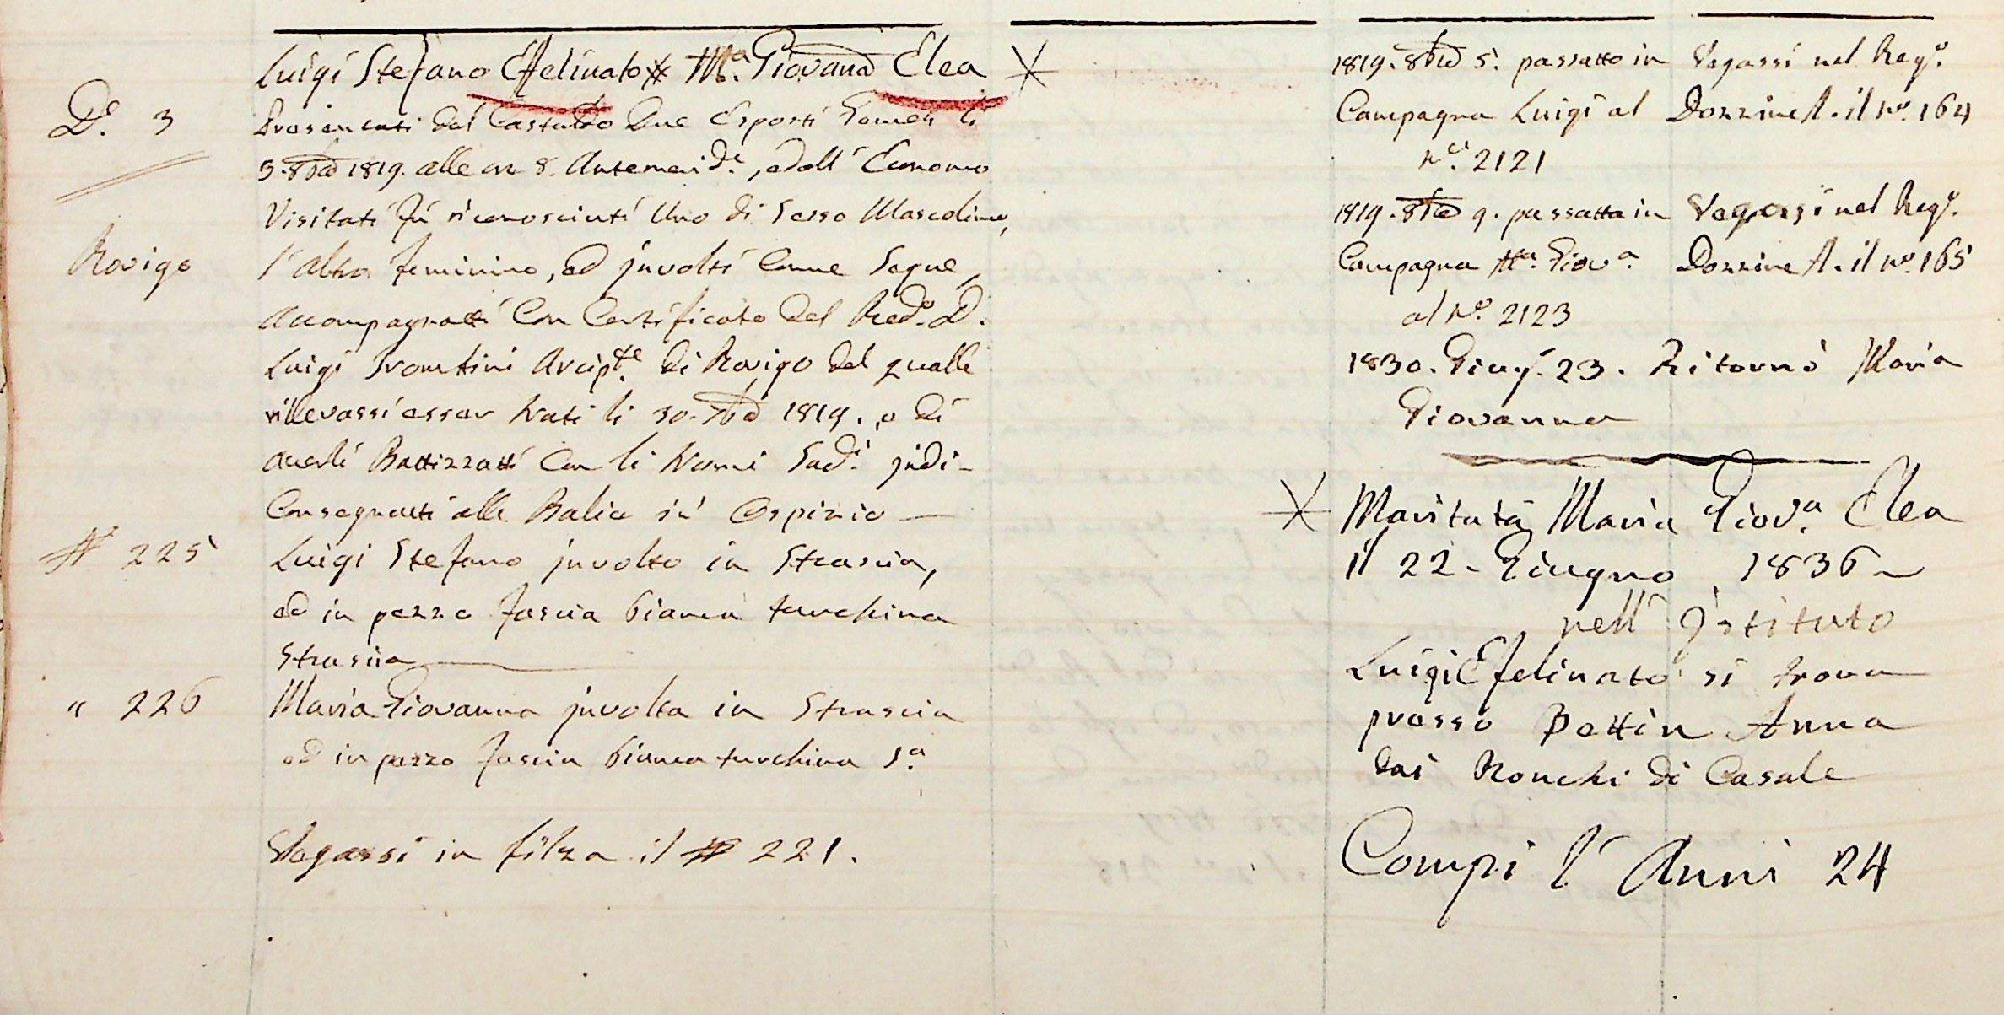 Luigi Stefano Efelinato # Mª. Giovana Elea
Dº. 3
Presentati dal Castaldo Due Esposti Gemeli li
3. 8bre 1819. alle ore 8. Antemerid.e, e dall' Economo
Visitati fù riconosciuti Uno di Sesso Mascolino,
Rovigo
l'altro feminino, ed involti Come Segue,
Accompagnatti Con Certificato del Redº. D.
Luigi Arcipte. di Rovigo dal qualle
rillevassi esser Nati li 30. 7bre 1819. e di
averli Battizzatti Con li Nomi Sadi. indi
Consegnatti alle Balie in Ospizio
# 225
Luigi Stefano involto in Strascia,
ed in pezzo fascia bianca turchina
Strascia
" 226
Maria Giovanna involta in Strascia
ed in pezzo fascia bianca turchina Sª.
Vegassi in filza il # 221.
1819. 8bre 5. passatto in
Campagna Luigi al
nº. 2121
Vegassi nel Regº.
Dozzine A. il nº. 164
1819. 8bre 9. passatta in
Campagna Mª. Giovª.
al nº. 2123
Vegassi nel Regº.
Dozzine A. il nº. 165
1830. Giugº. 23. Ritornò Maria
Giovanna
Maritata Maria Giovª. Elea
il 22 - Giugno 1836 -
nell' Istituto
Luigi Efelinato si trova
presso Bettin Anna
dai Ronchi di Casale
Compi l' Anni 24